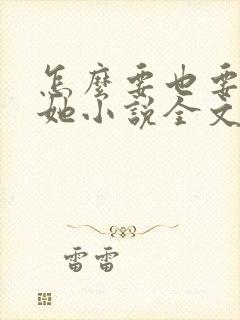 怎麼要也要
她小說全文
雷雷